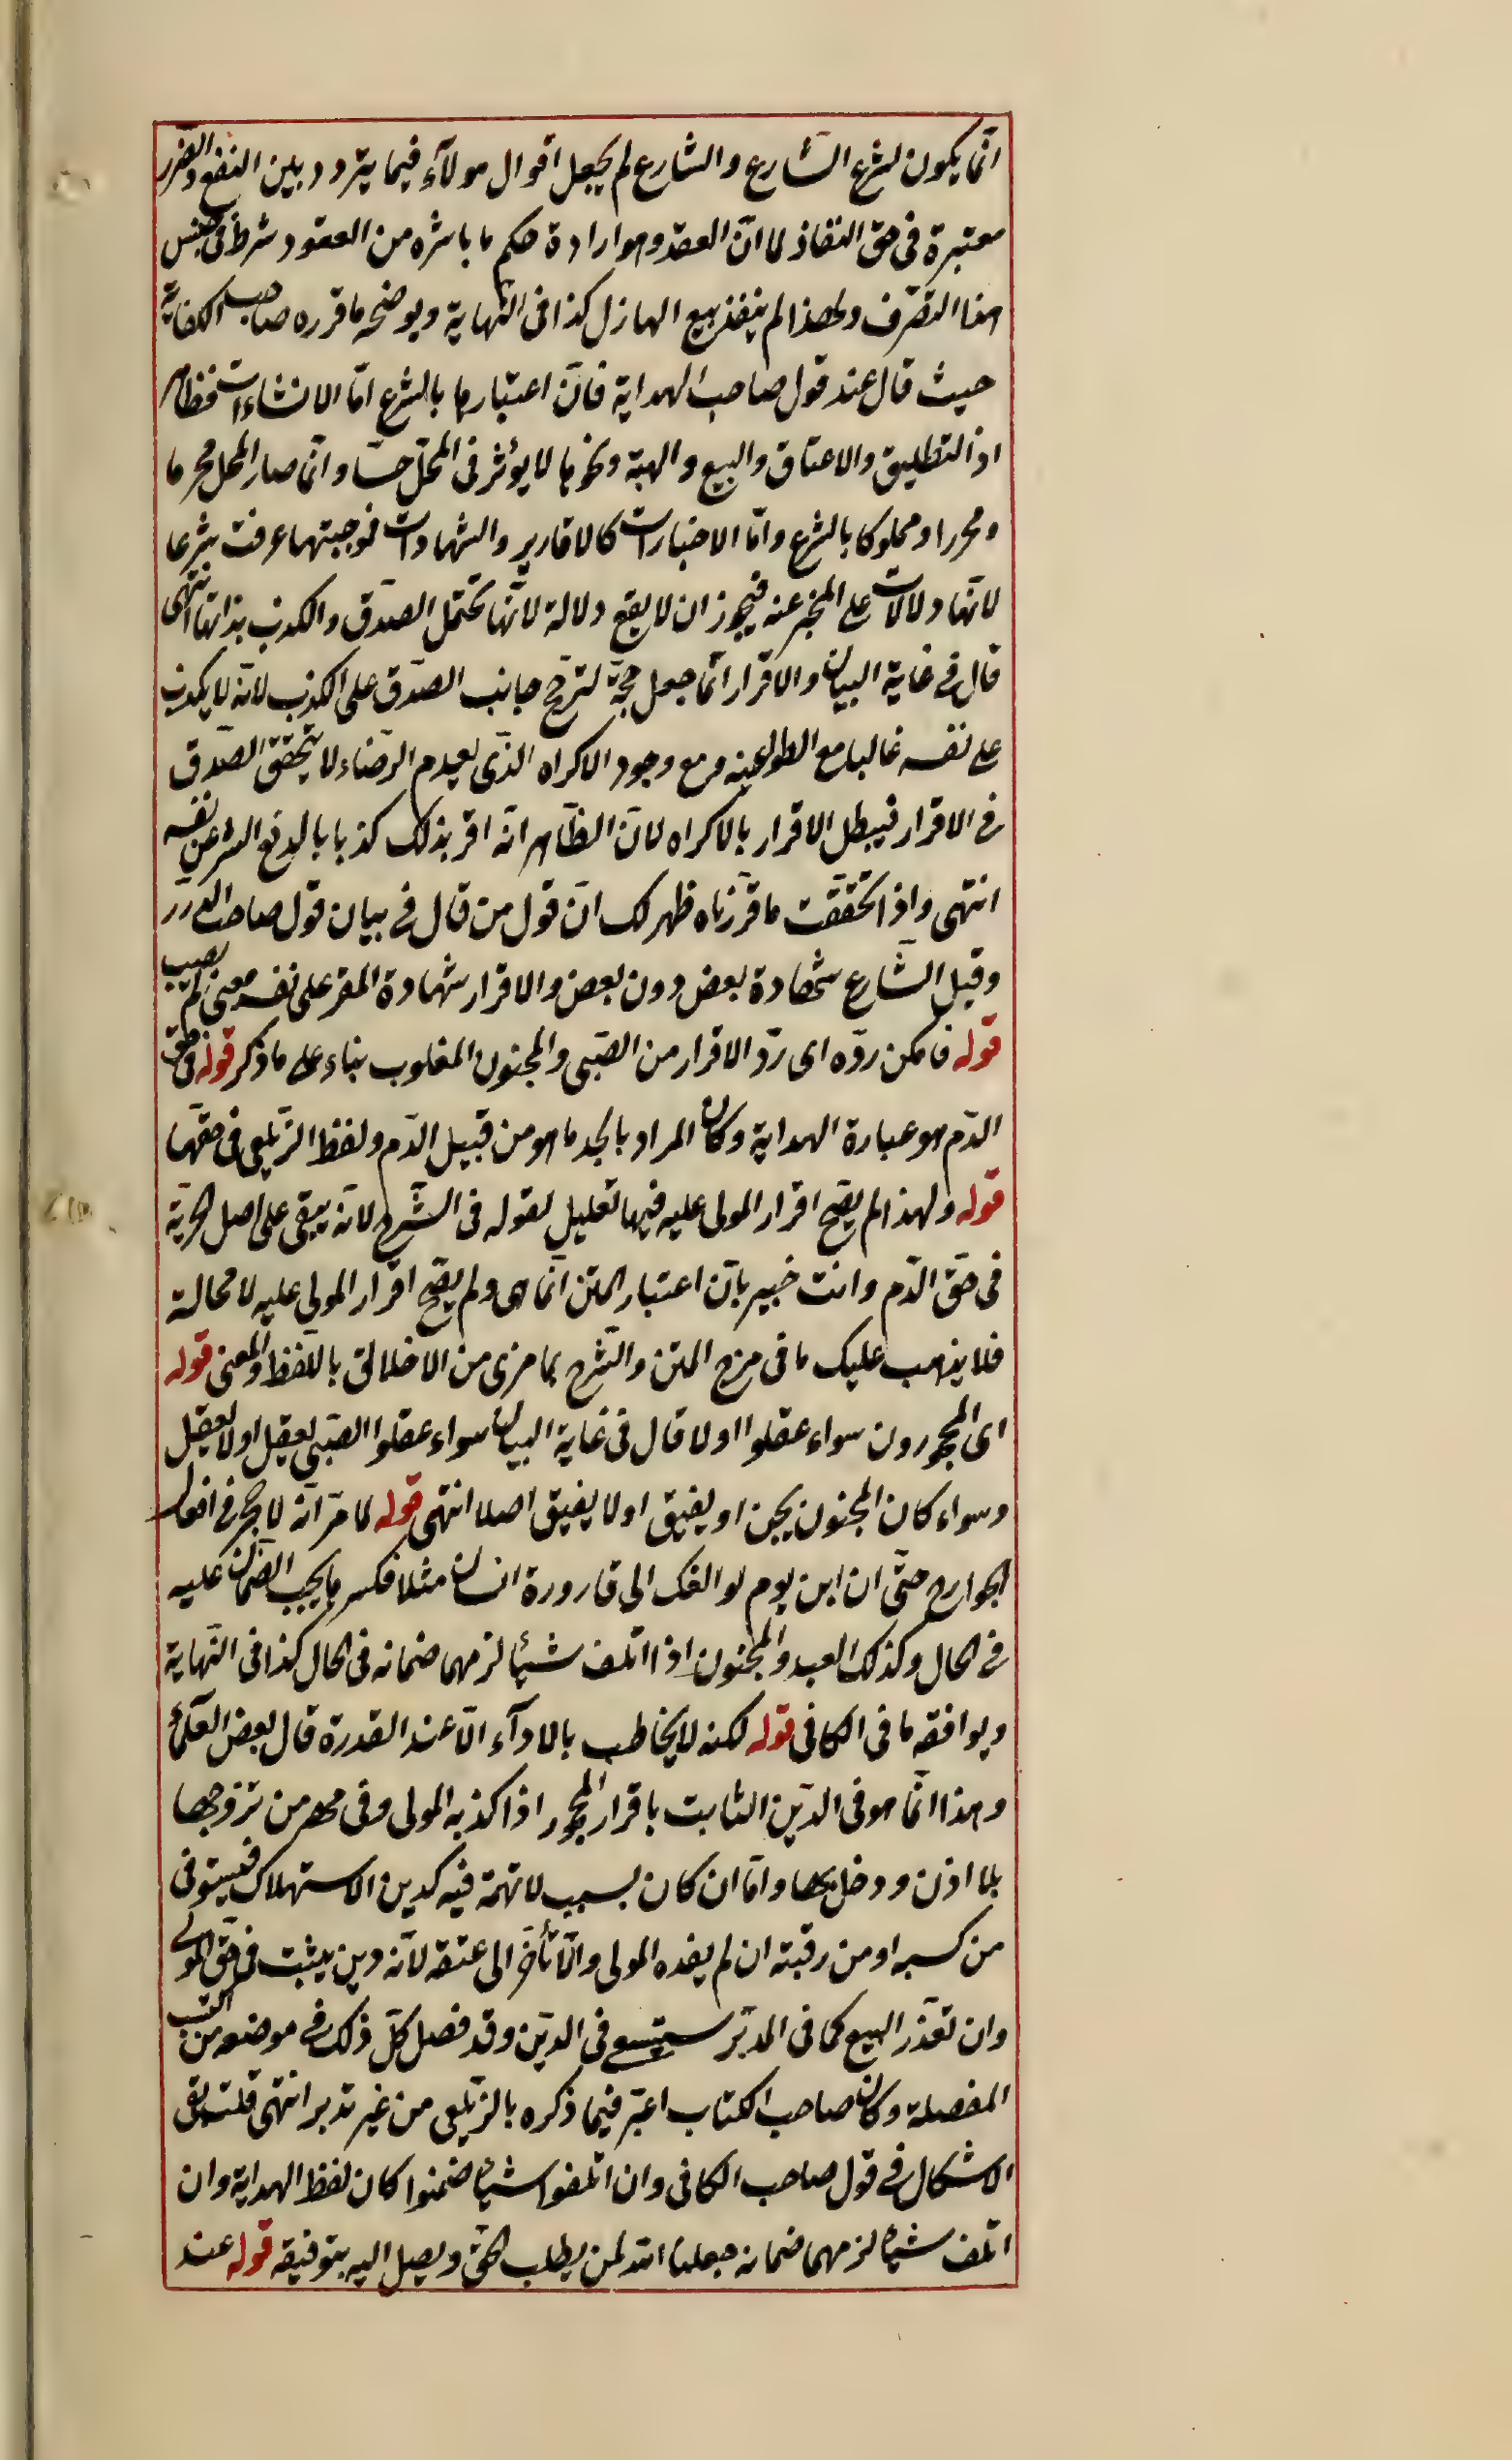 انّما يكون لشرع الشارع والشارع لم يجعل اقوال هولآء فيما يتردد بين النفع والضرر
معتبرة فى حق النفاذ لما انّ العقد وهو ارادة حكم ما باشره من العقود شرط فى جنس
هذا التصّرف ولهذا لم ينفذ بيع الهازل كذا فى النّهاية ويوضحه ما قرره صاحب الكفاية
حيث قال عند قول صاحب الهداية فانّ اعتبارها بالشرع امّا الانشاءات فظاهر
اذ التطليق والاعتاق والبيع والهبة ونحوها لا يؤثر فى المحلّ حسّا وانّما صار المحل محرما
ومحررا ومملوكا بالشرع وامّا الاخبارات كالاقارير والشهادات فوجبتهما عرفت شرعا
لانّها دلالات على المخبر عنه فيجوز ان لا يقع دلالة لانّها تحتمل الصّدق والكذب بذاتها انتهى
قال فى غاية البيان والاقرار انّما جعل حجّة لترجّح جانب الصّدق على الكذب لانّه لا يكذب
على نفسه غالبا مع الطواعية ومع وجود الاكراه الذّى يعدم الرّضاء لا يتحقّق الصّدق
فى الاقرار فيبطل الاقرار بالاكراه لانّ الظّاهر انّه اقر بذلك كذبا بالدفع الشر عن نفسه
انتهى واذا تحقّقت ما قرّرناه ظهر لك انّ قول من قال فى بيان قول صاحب الدرر
وقبل الشّارع شهادة بعض دون بعض والاقرار شهادة المقر على نفسه معنى لم يصب
قوله فامكن ردّه اى ردّ الاقرار من الصّبى والمجنون المغلوب بناء على ما ذكر قوله فى حق
الدّم هو عبارة الهداية وكان المراد بالحد ما هو من قبيل الدّم ولفظ الزّيلعى فى حقّها
قوله ولهذا لم يصّح اقرار المولى عليه فيها تعليل لقوله فى الشّرح لانّه يبقى على اصل الحريّة
فى حقّ الدّم وانت خبير بانّ اعتبار المتن انّما هى ولم يصّح اقرار المولى عليه لا محالة
فلا يذهب عليك ما فى مزج المتن والشّرح بما مزى من الاخلال باللّفظ والمعنى قوله
اى المحجورون سواء عقلوا اولا قال فى غاية البيان سواء عقلوا الصّبى يعقل اولا يعقل
وسواء كان المجنون يجن او يفيق اولا يفيق اصلا انتهى قوله لما مرّ انّه لا حجر فى افعال
الجوارح حتّى ان ابن يوم لو انقلب الى قارورة انسان مثلا فكسرها يجب الضّمان عليه
فى الحال وكذلك العبد والمجنون اذا اتلف شيئا لزمهما ضمانه فى الحال كذا فى النّهاية
ويوافقه ما فى الكافى قوله لكنه لا يخاطب بالادآء الّا عند القدرة قال بعض العلمآء
وهذا انّما هو فى الدّين الثابت باقرار المحجور اذا كذبه المولى وفى مهر من تزوجها
بلا اذن ودخل بها وامّا ان كان بسبب لا تهمة فيه كدين الاستهلاك فيستوفى
من كسبه او من رقبته ان لم يفده المولى والّا تأخّر الى عتقه لانّه دين يثبت فى حقّ المولى
وان تعذّر البيع كما فى المدبّر يستسعى فى الدّين وقد فصل كلّ ذلك فى موضعه من الكتب
المفصلة وكان صاحب الكتاب اغتر فيما ذكره بالزّيلعى من غير تدبر انتهى قلت بقى
الاشكال فى قول صاحب الكافى وان اتلفوا شيئا ضمنوا كان لفظ الهداية وان
اتلف شيئا لزمهما ضمانه جعلنا الله لمن يطلب الحقّ ويصل اليه بتوفيقه قوله عند